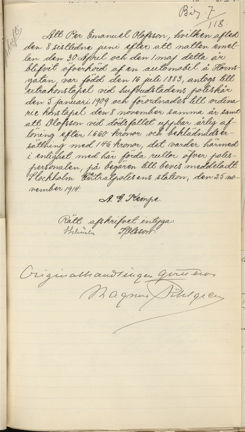 Bil. 7
/118.
Afskrift.
Att Per Emanuel Olofsson, hvilken afled
den 3 sistledne juni efter att natten emel-
lan den 30 April och den 1 maj detta år
blifvit öfverkörd af en automobil å Horns-
gatan, var född den 16 juli 1883, antogs till
extrakonstapel vid hufvudstadens poliskår
den 5 januari 1909 och förordnades till ordina-
rie konstapel den 1 november samma år samt
att Olofsson vid dödsfallet uppbar årlig af-
löning efter 1660 kronor och beklädnadser-
sättning med 146 kronor, det varder härmed
i enlighet med här förda rullor öfver polis-
personalen, på begäran till bevis meddeladt
Stockholm Centralpolisens station, den 25 no-
vember 1914.
A. G. Kempe
Rätt afskrifvet intyga:
Originalhandlingen
Magnus